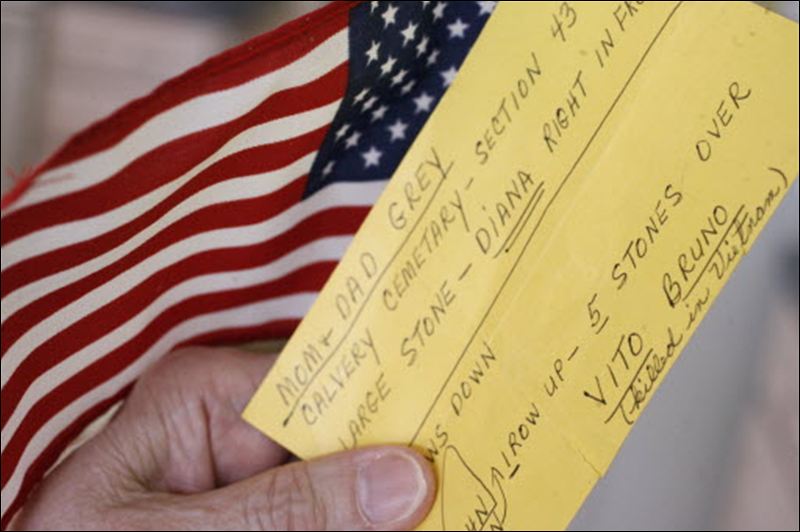 MOM & DAD GREY
CALVERY CEMETARY - SECTION 43
LARGE STONE - DIANA RIGHT IN
NS DOWN
1 ROW UP - 5 STONES OVER
VITO BRUNO
(killed in Vietnam)